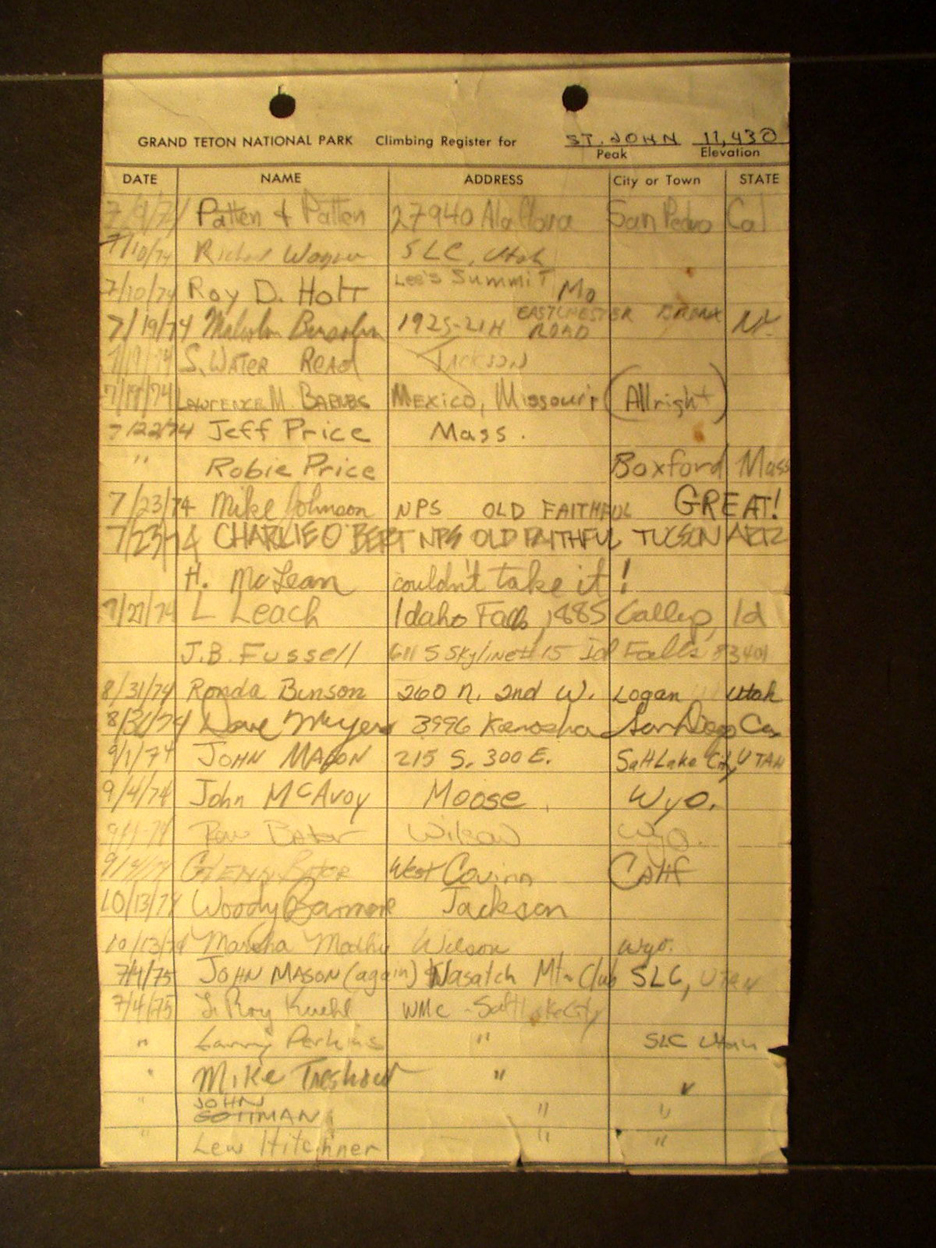 GRAND TETON NATIONAL PARK Climbing Register for ST. JOHN 11,430
Peak Elevation
DATE NAME ADDRESS City or Town STATE
7/9/74 Patten & Patten 27940 Ala San Pedro Cal
7/10/74 Wagner SLC, Utah
7/10/74 Roy D. Holt Lee's Summit Mo
7/19/74 Malcolm 1925-21H EASTCHESTER ROAD BRONX NY
S. WATER READ JACKSON
7/19/74 LAWRENCE M. Mexico, Missouri (Allright)
7/22/74 Jeff Price Mass.
" Robie Price Boxford Mass
7/23/74 Mike Johnson NPS OLD FAITHFUL GREAT!
7/23/74 CHARLIE O BERT NPS OLD FAITHFUL TUCSON ARIZ
H. McLean couldn't take it!
7/27/74 L Leach Idaho Falls, 1885 Id
J.B. Fussell 611 S Skyline # 15 Id Falls 83401
8/31/74 Ronda Benson 260 N. 2nd W. Logan Utah
8/31/74 Dave Myers 3996 Kenosha San Diego Ca
9/1/74 JOHN MASON 215 S. 300 E. Salt Lake City UTAH
9/4/74 John McAvoy Moose, Wyo.
Wilson Wyo.
9/4/74 GLENN West Covina Calif
10/13/74 Woody Barmore Jackson
10/13/74 Marsha Wilson Wyo.
7/4/75 JOHN MASON (again) Wasatch Mtn Club SLC, UTAH
7/4/75 LeRoy Kuehl WMC - Salt Lake City
" Larry Perkins " SLC Utah
" Mike Treshow " "
" JOHN GOTTMAN " "
" Lew Hitchner " "